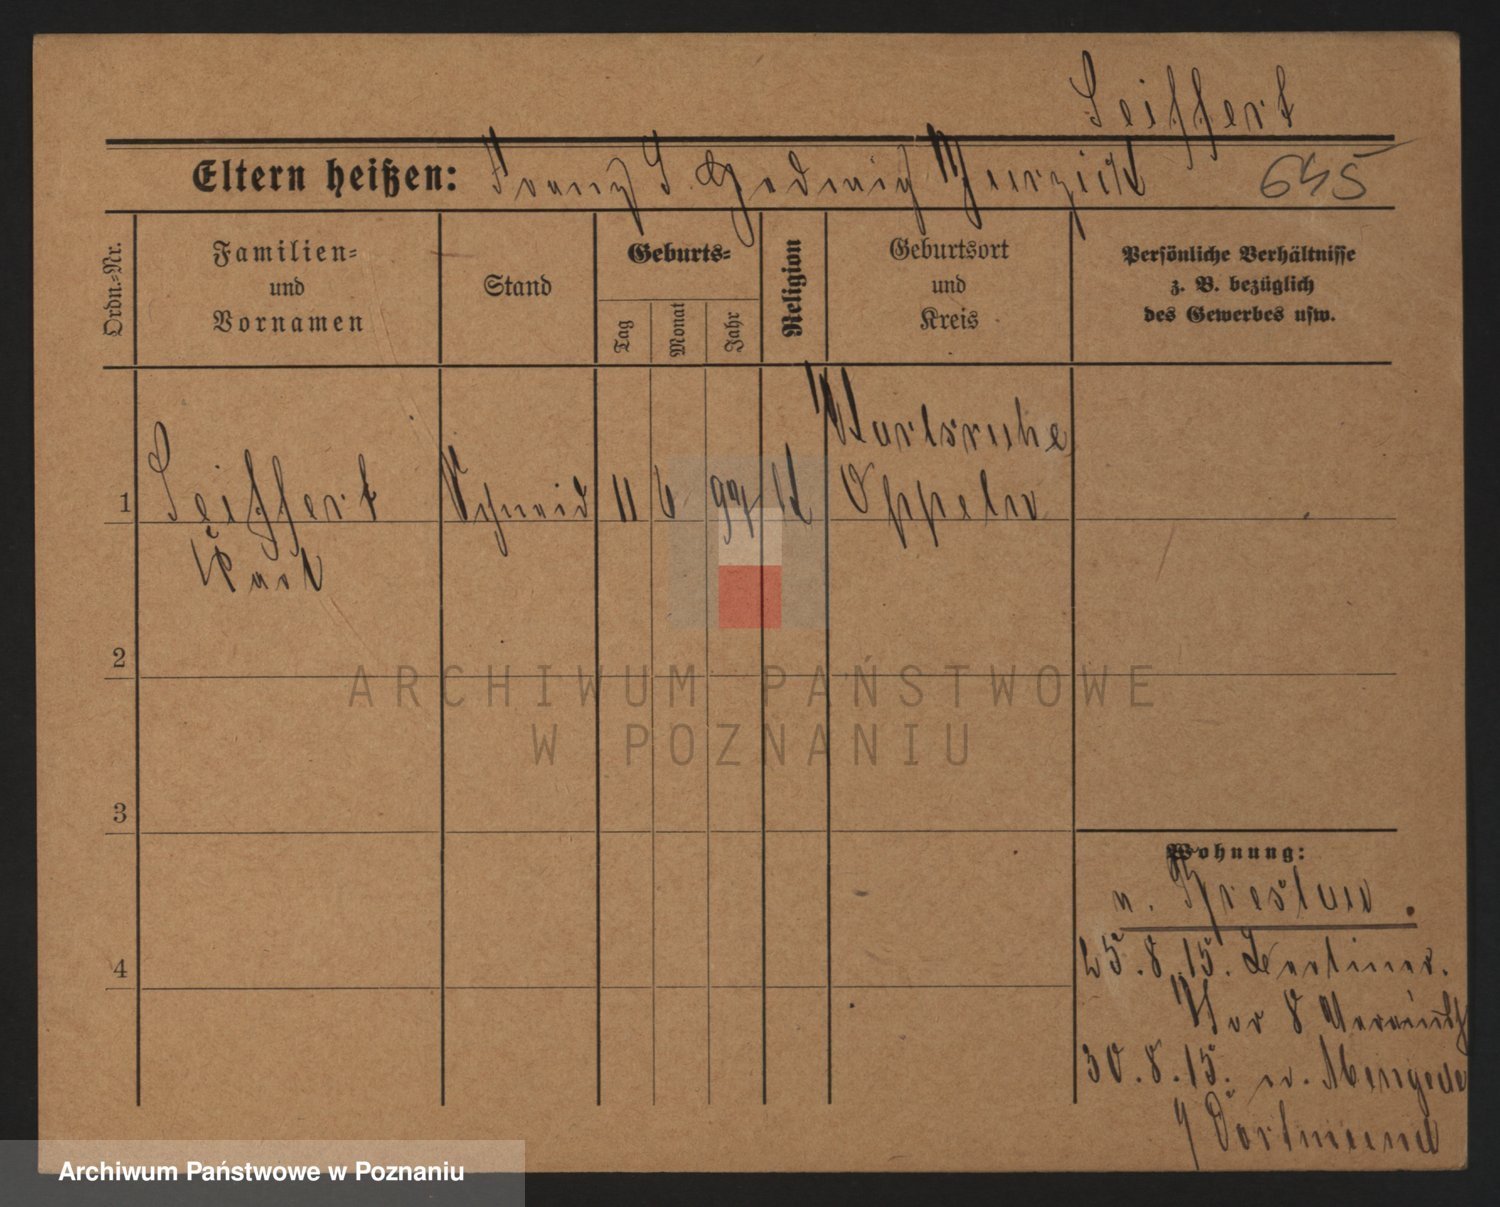 Seiffert
Eltern heißen: Franz S. Hedwig 645
Ordn.-Nr.
Familien-
und
Vornamen
Stand
Geburts-
Tag
Monat
Jahr
Religion
Geburtsort
und
Kreis
Persönliche Verhältnisse
z. B. bezüglich
des Gewerbes usw.
Karlsruhe
1 Seiffert Schneid 11 6 97 k Oppeln
Kurt
2
ARCHIWUM PAŃSTWOWE
W POZNANIU
3
Wohnung:
n. Breslau.
4
25.8.15. Berliner.
Tor 8
30.8.15. n. Mengede
Dortmund
Archiwum Państwowe w Poznaniu